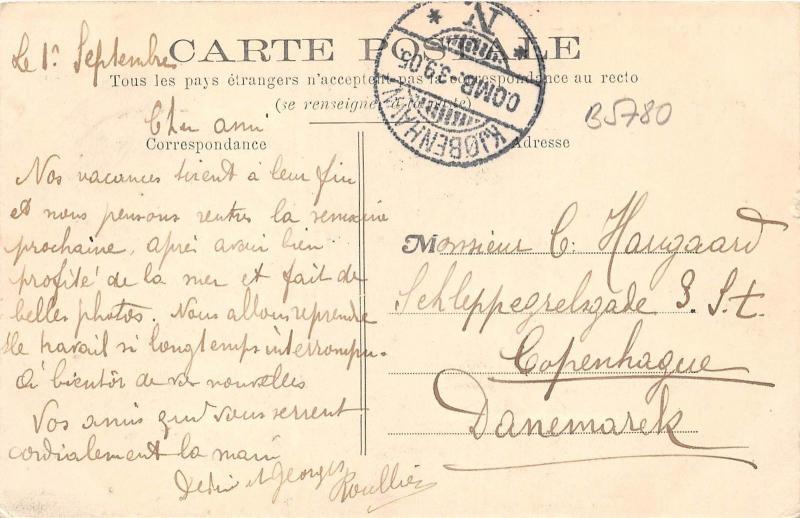 Le 1r Septembre
CARTE POSTALE
Tous les pays étrangers n'acceptent pas la correspondance au recto
(se renseigner à la poste)
Cher ami
Correspondance
Nos vacances tirent à leur fin
et nous pensons rentrer la semaine
prochaine, après avoir bien
profité de la mer et fait de
belles photos. Nous allons reprendre
le travail si longtemps interrompu.
à bientôt de vos nouvelles
Vos amis qui vous serrent
cordialement la main
et Georges
Roullier
KJØBENHAVN
OMB. 3.9.05
IV
B5780
Adresse
Monsieur C. Haugaard
Schleppegrelsgade 3. S.t.
Copenhague
Danemarck